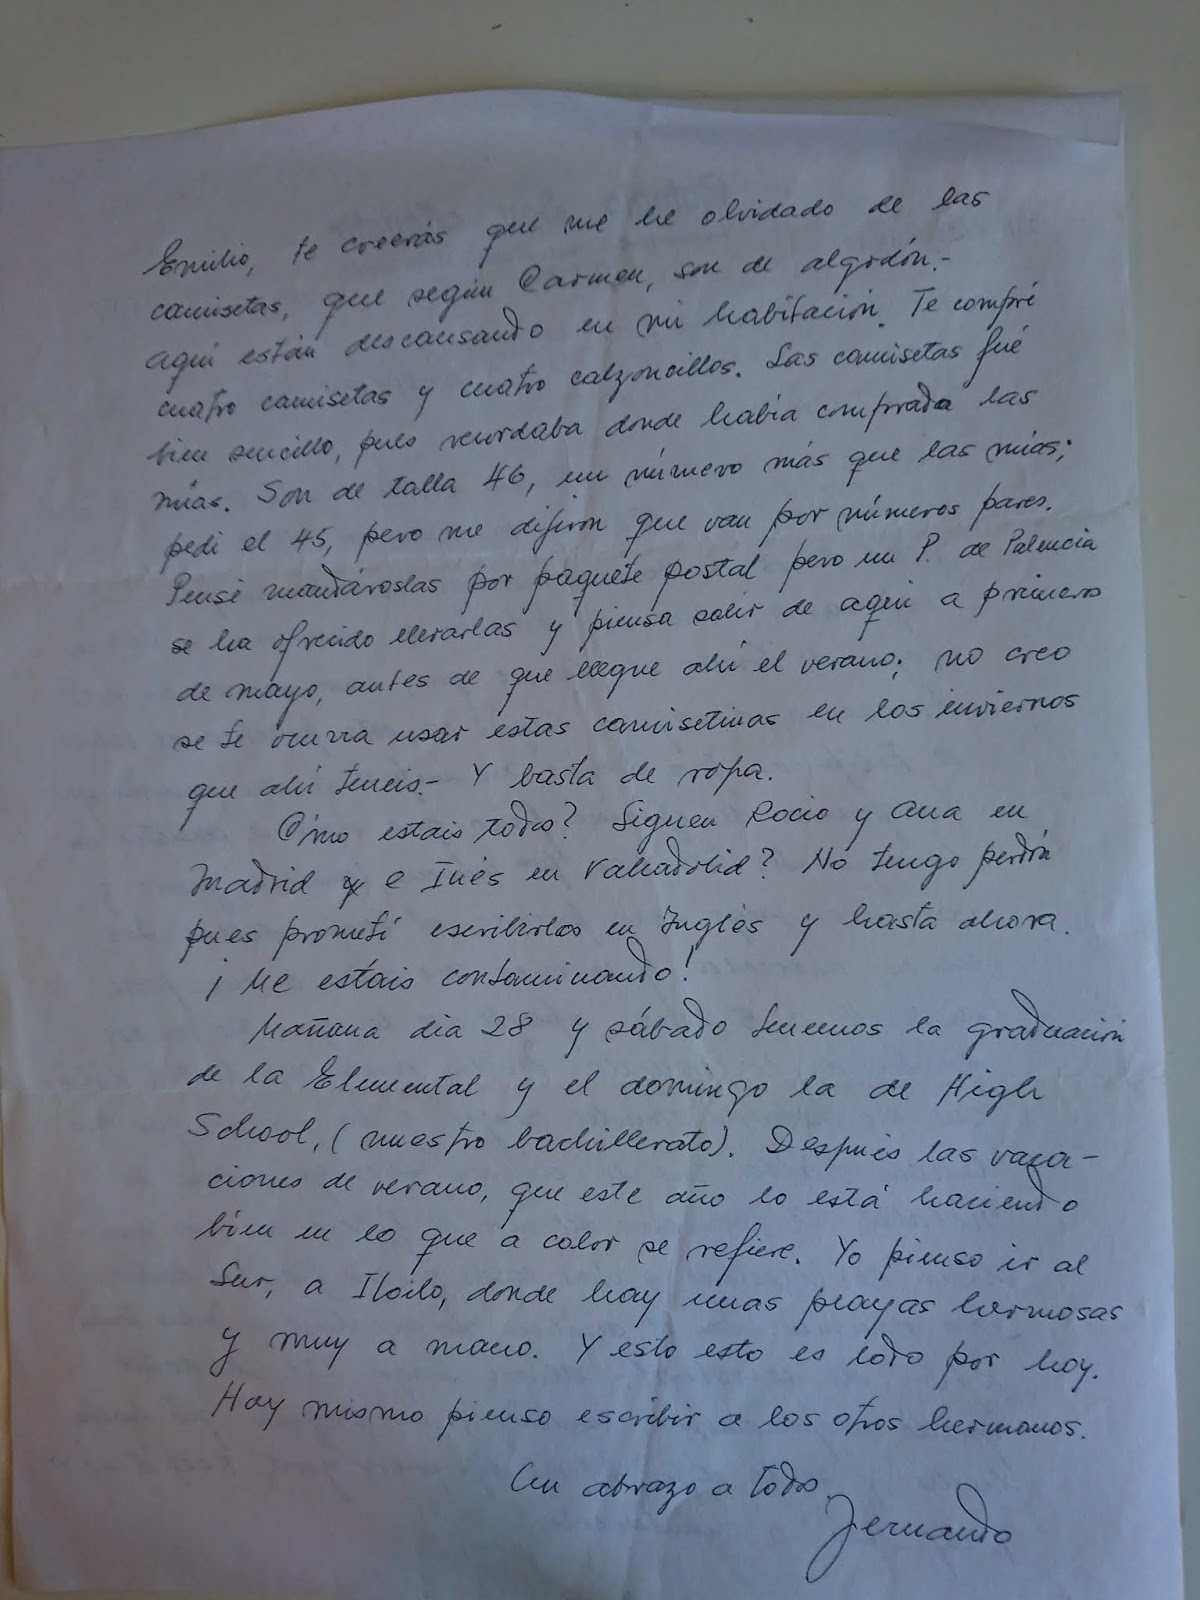 Emilio, te creerás que me he olvidado de las
camisetas, que según Carmen, son de algodón.-
aquí están descansando en mi habitación. Te compré
cuatro camisetas y cuatro calzoncillos. Las camisetas fué
bien sencillo, pues recordaba donde había comprado las
mías. Son de talla 46, un número más que las mías;
pedí el 45, pero me dijeron que van por números pares.
Pensé mandároslas por paquete postal pero un P. de Palencia
se ha ofrecido llevarlas y piensa salir de aquí a primeros
de mayo, antes de que llegue ahí el verano; no creo
se te ocurra usar estas camisetinas en los inviernos
que ahí teneis.- Y basta de ropa.
Cómo estais todos? Siguen Rocio y Ana en
Madrid e Inés en Valladolid? No tengo perdón
pues prometí escribirlos en Inglés y hasta ahora.
¡Me estáis contaminando!
Mañana dia 28 y sábado tenemos la graduación
de la Elemental y el domingo la de High
School, (nuestro bachillerato). Después las vaca-
ciones de verano, que este año lo está haciendo
bien en lo que a calor se refiere. Yo pienso ir al
Sur, a Iloilo, donde hay unas playas hermosas
y muy a mano. Y esto esto es todo por hoy.
Hoy mismo pienso escribir a los otros hermanos.
Un abrazo a todos.
Fernando